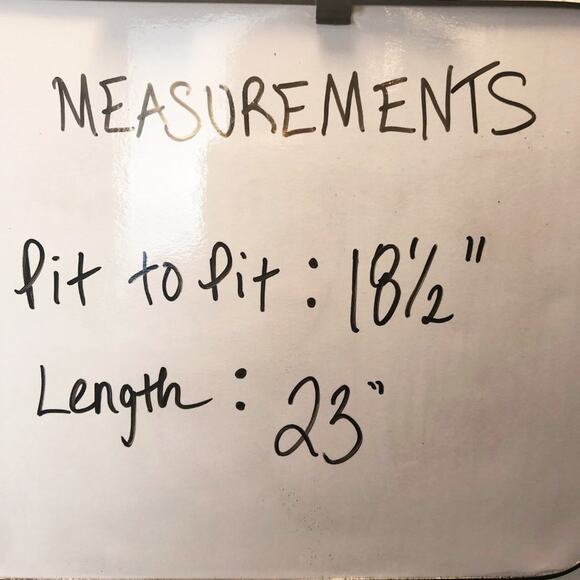 MEASUREMENTS
Pit to Pit : 18 1/2"
Length : 23"